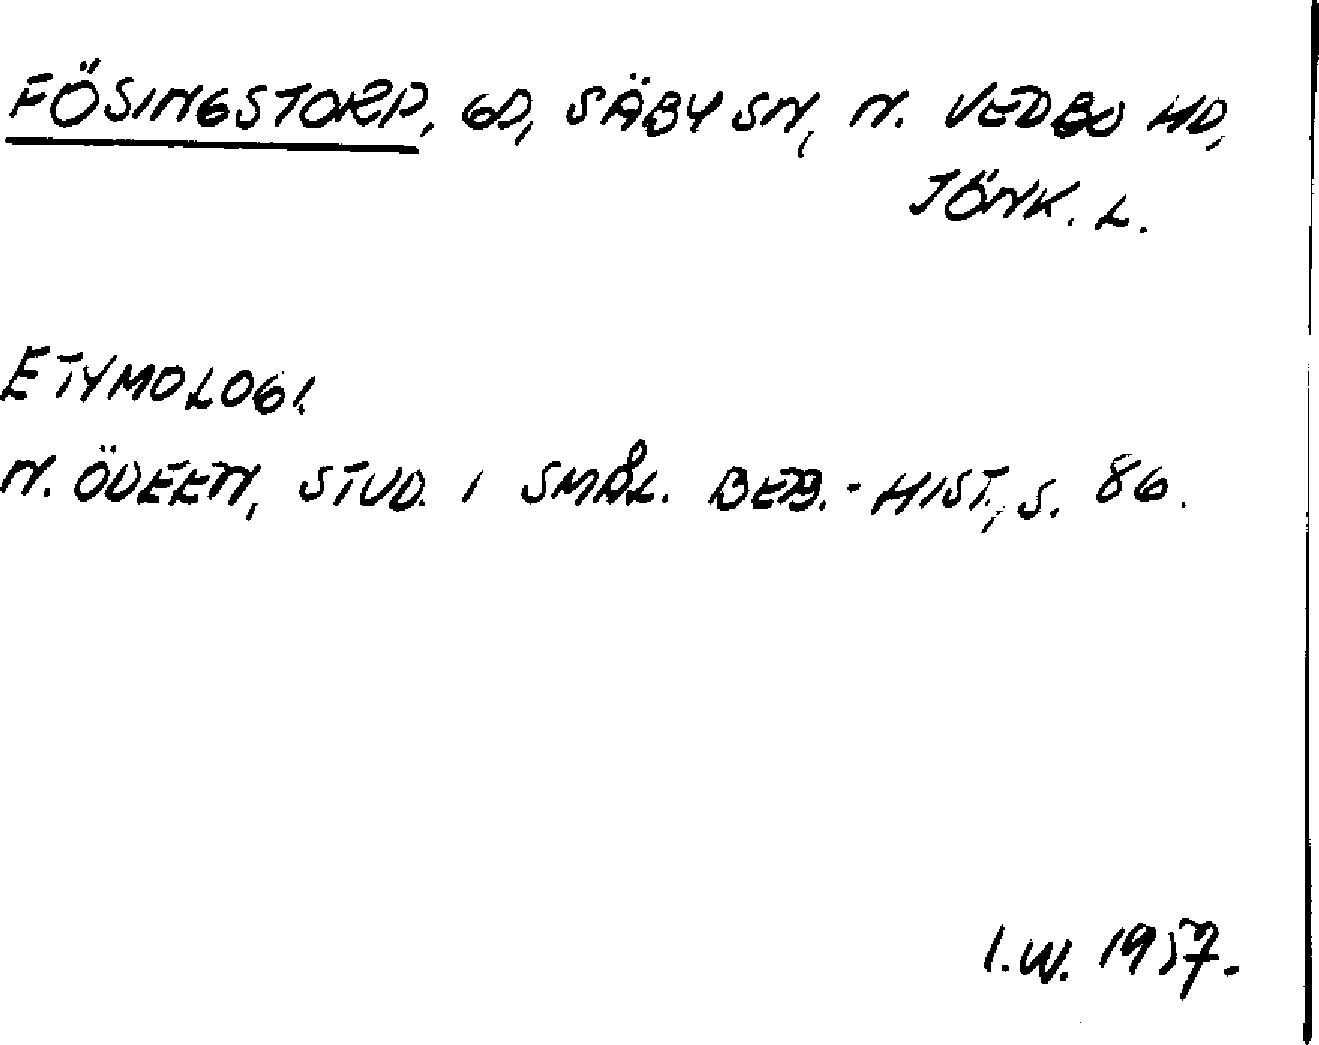 FÖSINGSTORP, GD, SÄBY SN, N. VEDBO HD,
JÖNK. L.
ETYMOLOGI.
N. ÖDEEN, STUD. I SMÅL. BEB.-HIST., S. 86.
I.W. 1957.